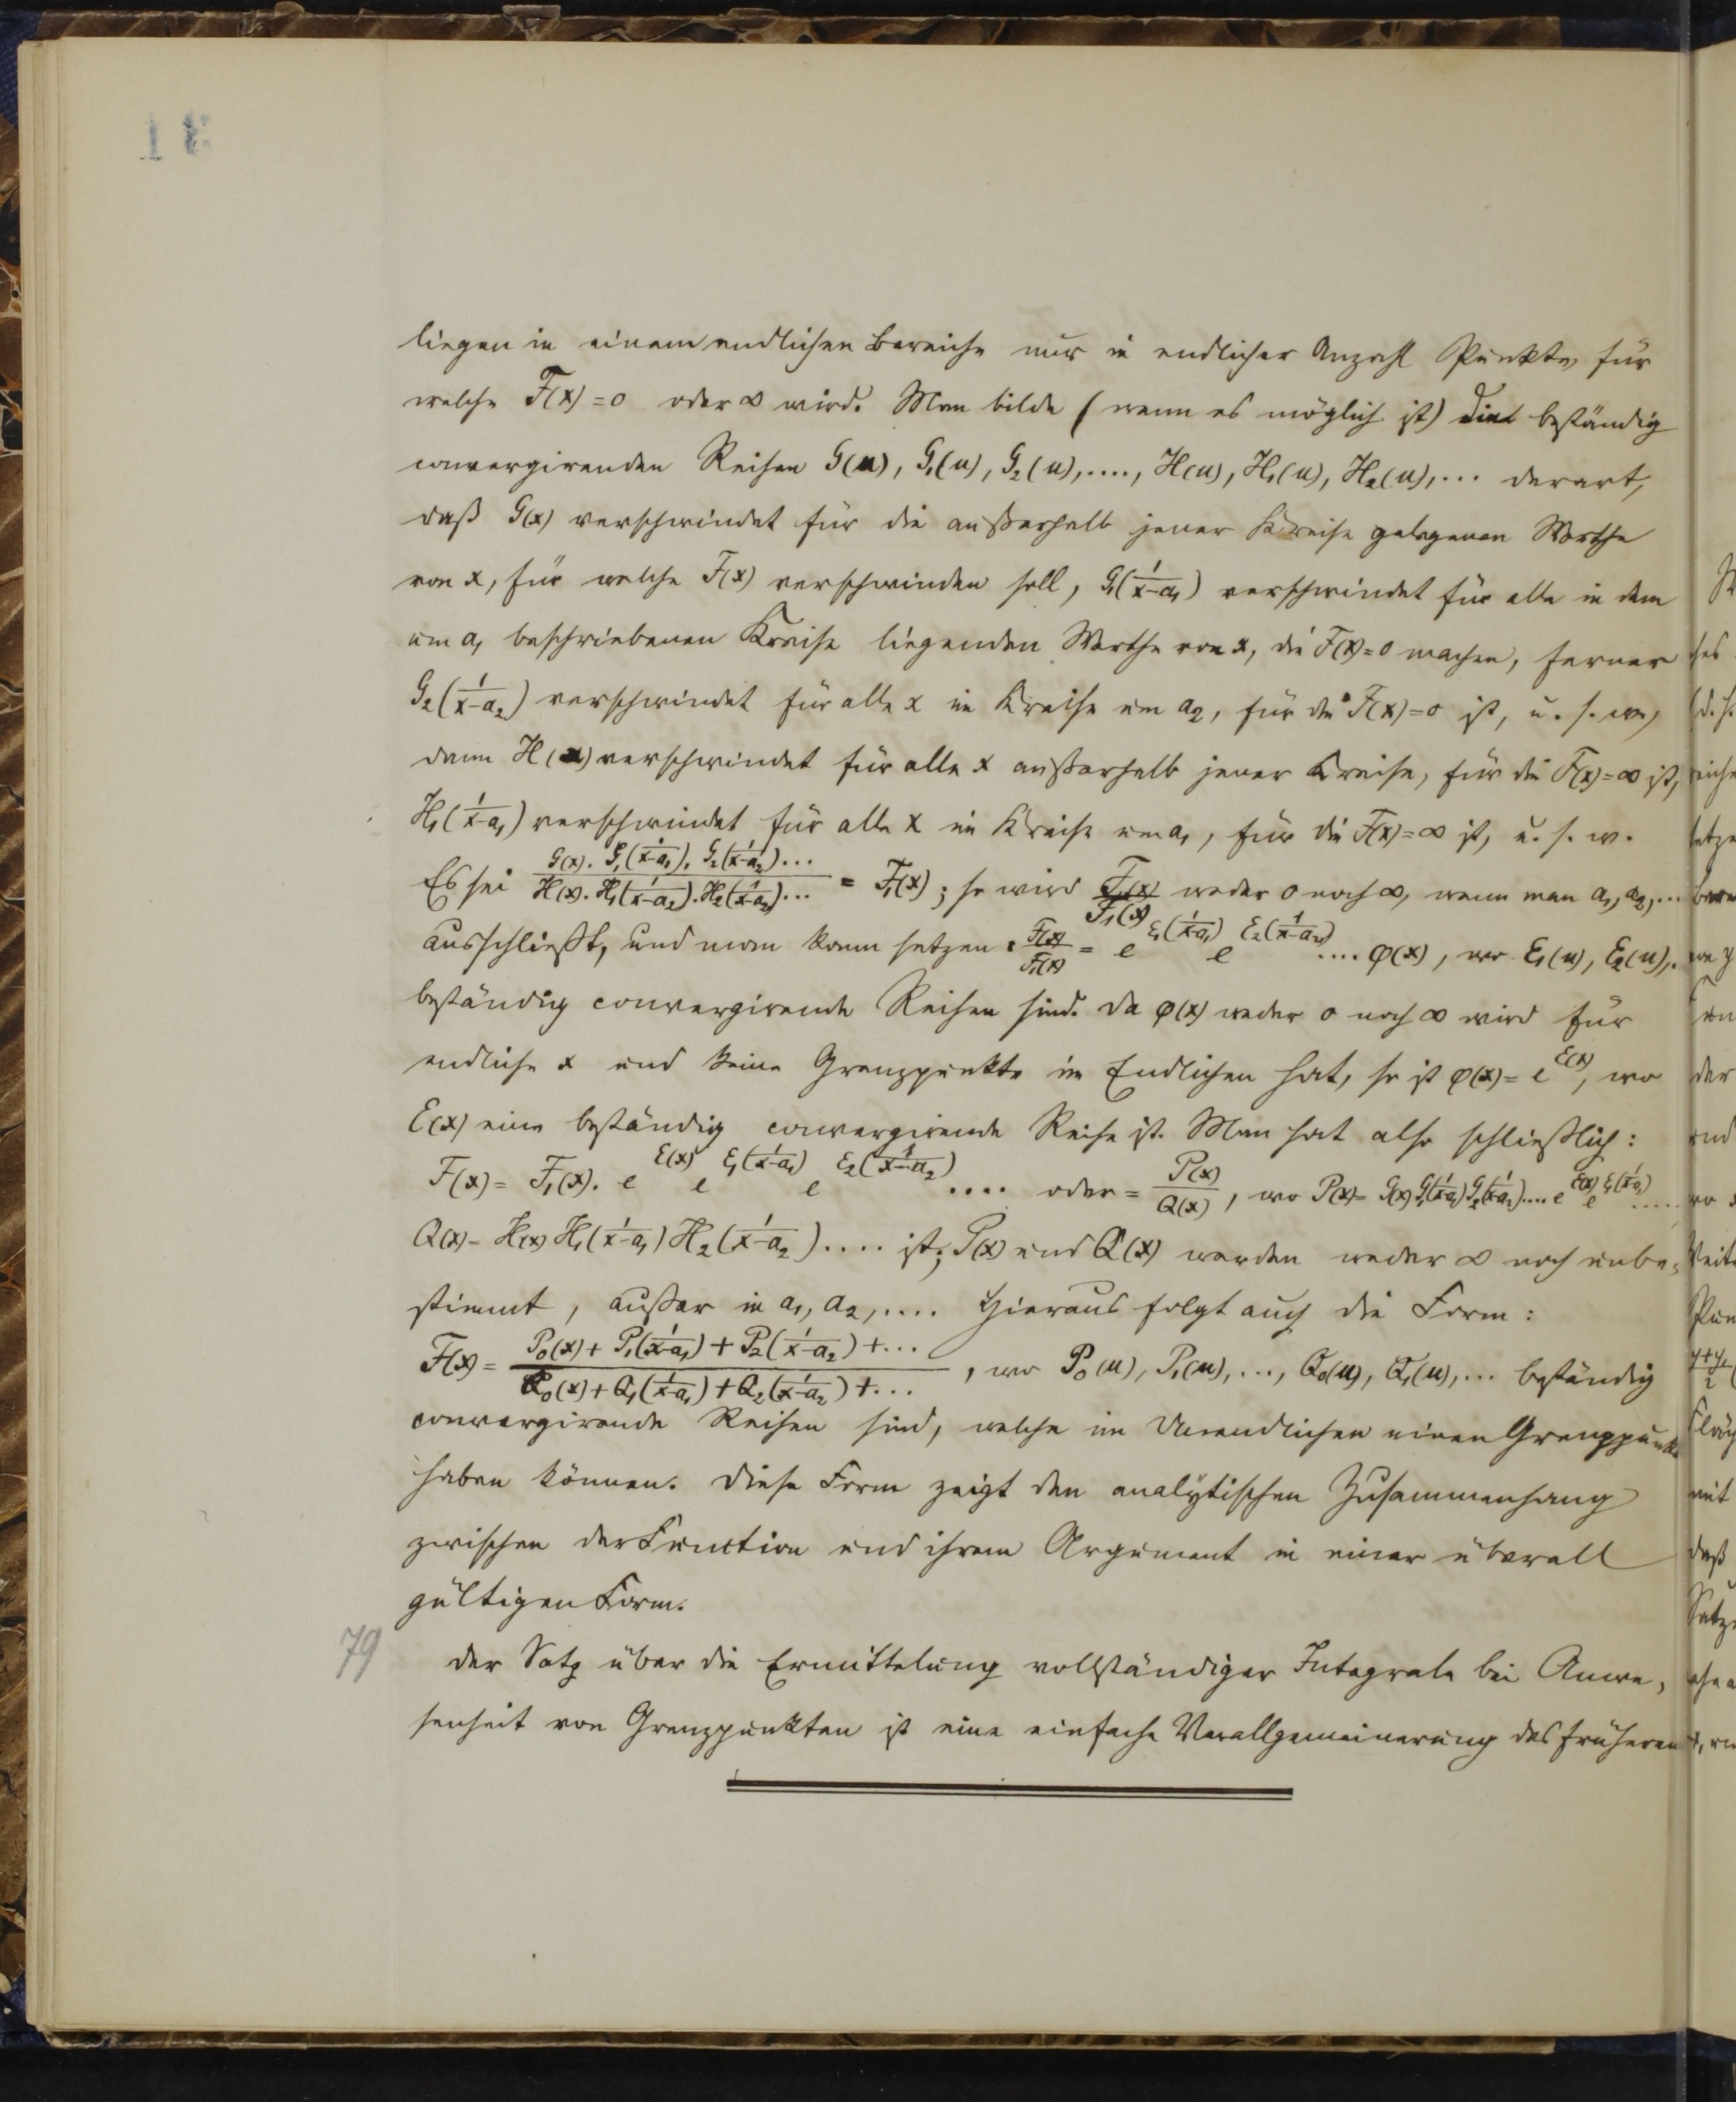 liegen in einem endlichen Bereiche nur in endlicher Anzahl Punkte, für
welche F(x)=0 oder ∞ wird. Man bilde (wenn es möglich ist) die beständig
convergirenden Reihen G(u), G₁(u), G₂(u),...., H(u), H₁(u), H₂(u),... derart,
daß G(x) verschwindet für die außerhalb jener Kreise gelegenen Werthe
von x, für welche F(x) verschwinden soll, G₁(1/(x-a₁)) verschwindet für alle in dem
um a₁ beschriebenen Kreise liegenden Werthe von x, die F(x)=0 machen, ferner
G₂(1/(x-a₂)) verschwindet für alle x im Kreise um a₂, für die F(x)=0 ist, u. s. w.,
dann H(x) verschwindet für alle x außerhalb jener Kreise, für die F(x)=∞ ist,
H₁(1/(x-a₁)) verschwindet für alle x im Kreise um a₁, für die F(x)=∞ ist, u. s. w.
Es sei (G(x). G₁(1/(x-a₁)). G₂(1/(x-a₂))...)/(H(x). H₁(1/(x-a₂)). H₂(1/(x-a₂))...) = F₁(x); so wird F(x)/F₁(x) weder 0 noch ∞, wenn man a₁, a₂,...
ausschließt, und man kann setzen: F(x)/F₁(x) = e^{E₁(1/(x-a₁))} e^{E₂(1/(x-a₂))} .... φ(x), wo E₁(u), E₂(u),.
beständig convergirende Reihen sind. Da φ(x) weder 0 noch ∞ wird für
endliche x und keine Grenzpunkte im Endlichen hat, so ist φ(x)= e^{E(x)}, wo
E(x) eine beständig convergirende Reihe ist. Man hat also schließlich:
F(x) = F₁(x). e^{E(x)} e^{E₁(1/(x-a₁))} e^{E₂(1/(x-a₂))} .... oder = P(x)/Q(x), wo P(x)= G(x) G₁(1/(x-a₁)) G₂(1/(x-a₂)).... e^{E(x)} e^{E₁(1/(x-a₁))} .....
Q(x)= H(x) H₁(1/(x-a₁)) H₂(1/(x-a₂)).... ist; P(x) und Q(x) werden weder ∞ noch unbe=
stimmt, außer in a₁, a₂,.... Hieraus folgt auch die Form:
F(x) = (P₀(x)+ P₁(1/(x-a₁)) + P₂(1/(x-a₂)) +...)/(Q₀(x)+ Q₁(1/(x-a₁)) + Q₂(1/(x-a₂)) +...), wo P₀(u), P₁(u),..., Q₀(u), Q₁(u),... beständig
convergirende Reihen sind, welche im Unendlichen einen Grenzpunkt
haben können. Diese Form zeigt den analytischen Zusammenhang
zwischen der Function und ihrem Argument in einer überall
gültigen Form.
79 Der Satz über die Ermittelung vollständiger Integrale bei Anwe=
senheit von Grenzpunkten ist eine einfache Verallgemeinerung des früheren